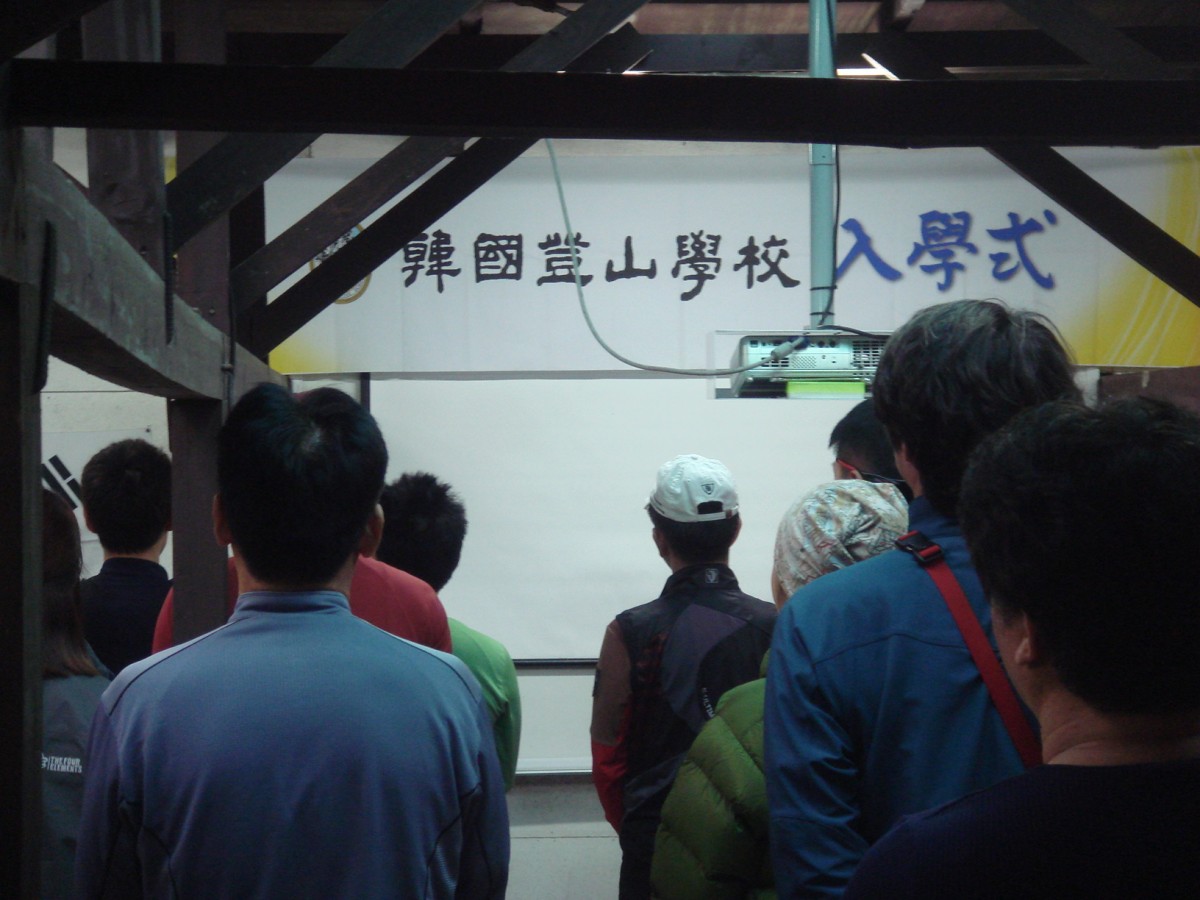 韓國登山學校 入學式
THE FOUR
ELEMENTS